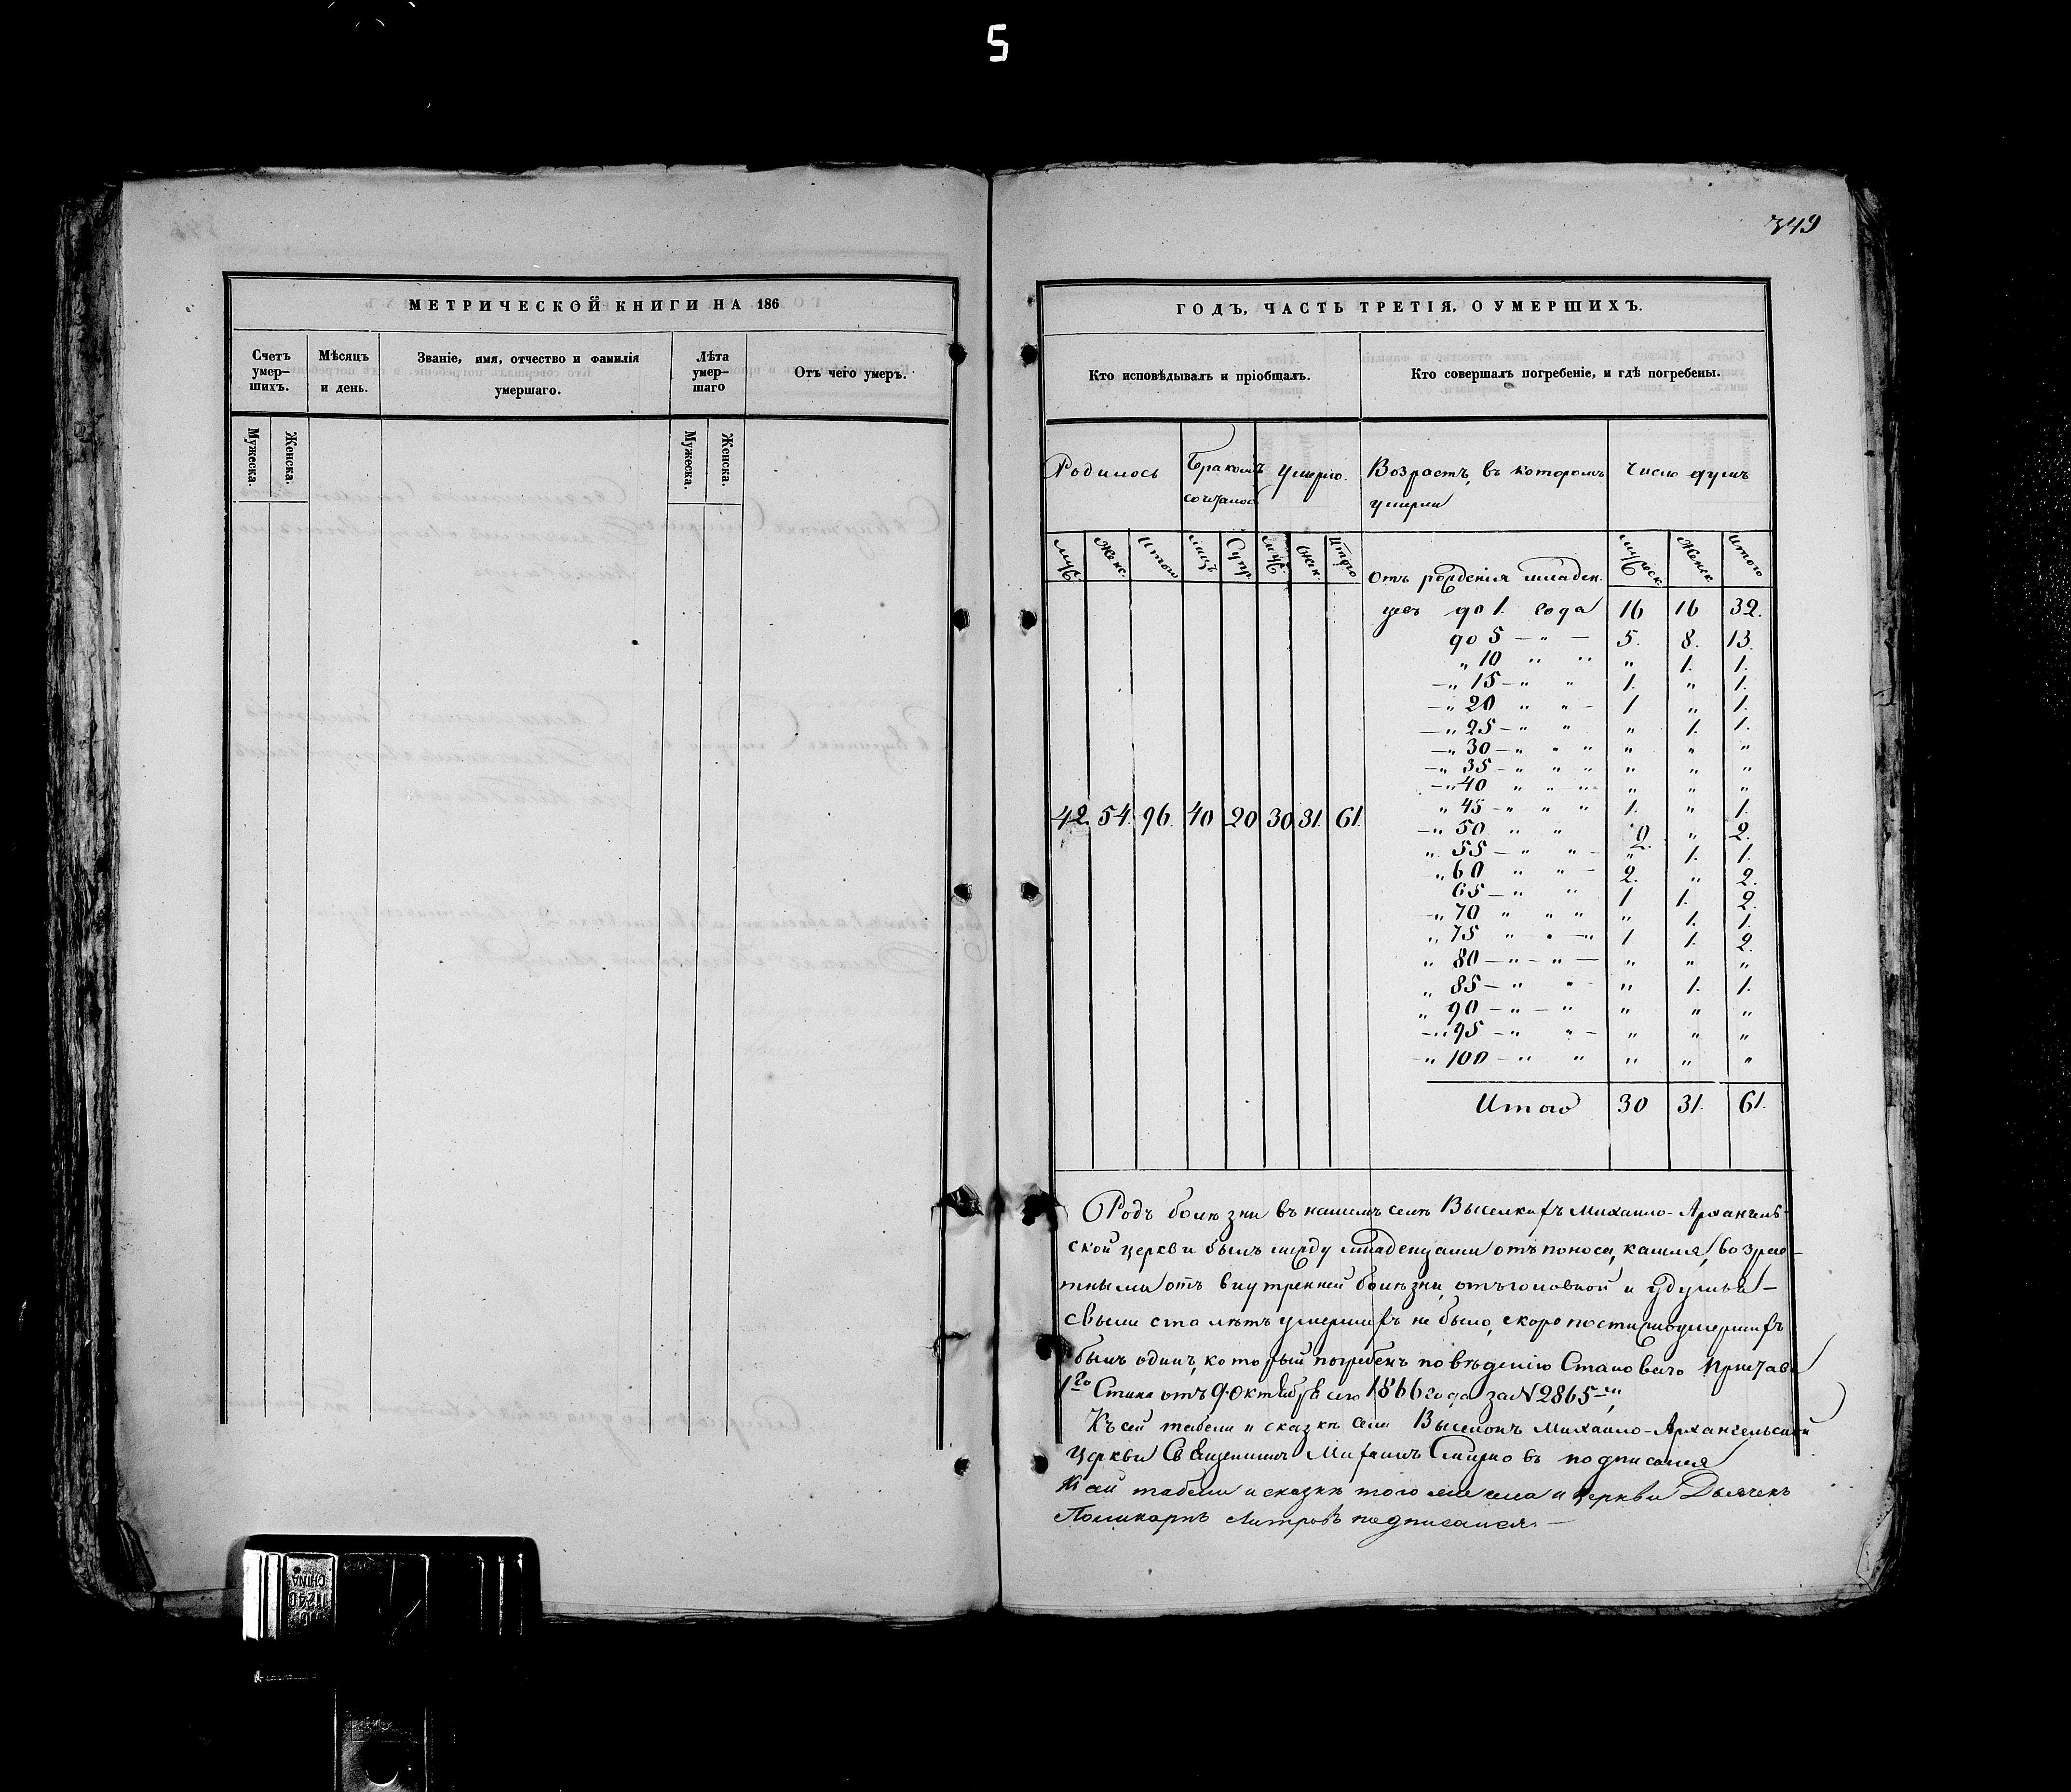 5
349
МЕТРИЧЕСКОЙ КНИГИ НА 186
Счетъ умер- шихъ.
Мѣсяцъ и день.
Званіе, имя, отчество и фамилія умершаго.
Лѣта умер- шаго
Отъ чего умеръ.
Мужеска.
Женска.
Мужеска.
Женска.
ГОДЪ, ЧАСТЬ ТРЕТІЯ, О УМЕРШИХЪ.
Кто исповѣдывалъ и пріобщалъ.
Кто совершалъ погребеніе, и гдѣ погребены.
Родилось
Бракомъ сочталось
Умерло.
Возрастъ, въ которомъ умерли
Число душъ
Муж. Женс. Итого Лицъ Супр. Муж. Жен. Итого
Отъ рожденія младен. Мужеск. Женск. Итого
цевъ до 1. года 16 16 32.
до 5 — " — 5. 8. 13.
" 10 " " " 1. 1.
— " 15 — " " 1. " 1.
— " 20 " " — 1 " 1.
— " 25 — " " " 1. 1.
— " 30 — " " " " " "
— " 35 — " " " " " "
— " 40 " " " " " "
" 45 — " " " 1. " 1.
42. 54. 96. 40 20 30 31. 61.
— " 50 " " 2. " 2.
" 55 — " " — " 1. 1.
" 60 " " — 2. " 2.
65 — " " 1 1. 2.
— " 70 " " " " 1. 1.
" 75 " " — " 1 1. 2.
" 80 — " — " — " " "
" 85 — " " — " 1. 1.
" 90 — " — " " " "
— " 95 — " " — " " "
— " 100 — " " " " "
Итого 30 31. 61.
Родъ болѣзни въ нашемъ селѣ Выселкахъ Михаило-Архангель-
ской церкви былъ между младенцами отъ поноса, кашля, возрас-
тными отъ внутренней болѣзни, отъ головной и удушья —
свыше ста лѣтъ умершихъ не было, скоропостижно умершихъ
былъ одинъ, который погребенъ по вѣденію Становаго Пристава
1го Стана отъ 9 Октября сего 1866 года за № 2865-мъ
Къ сей табели и сказкѣ села Выселокъ Михаило-Архангельской
Церкви Священникъ Михаилъ Смирновъ подписался
Къ сей табели и сказкѣ того же села и церкви Дьячекъ
Поликарпъ подписался —